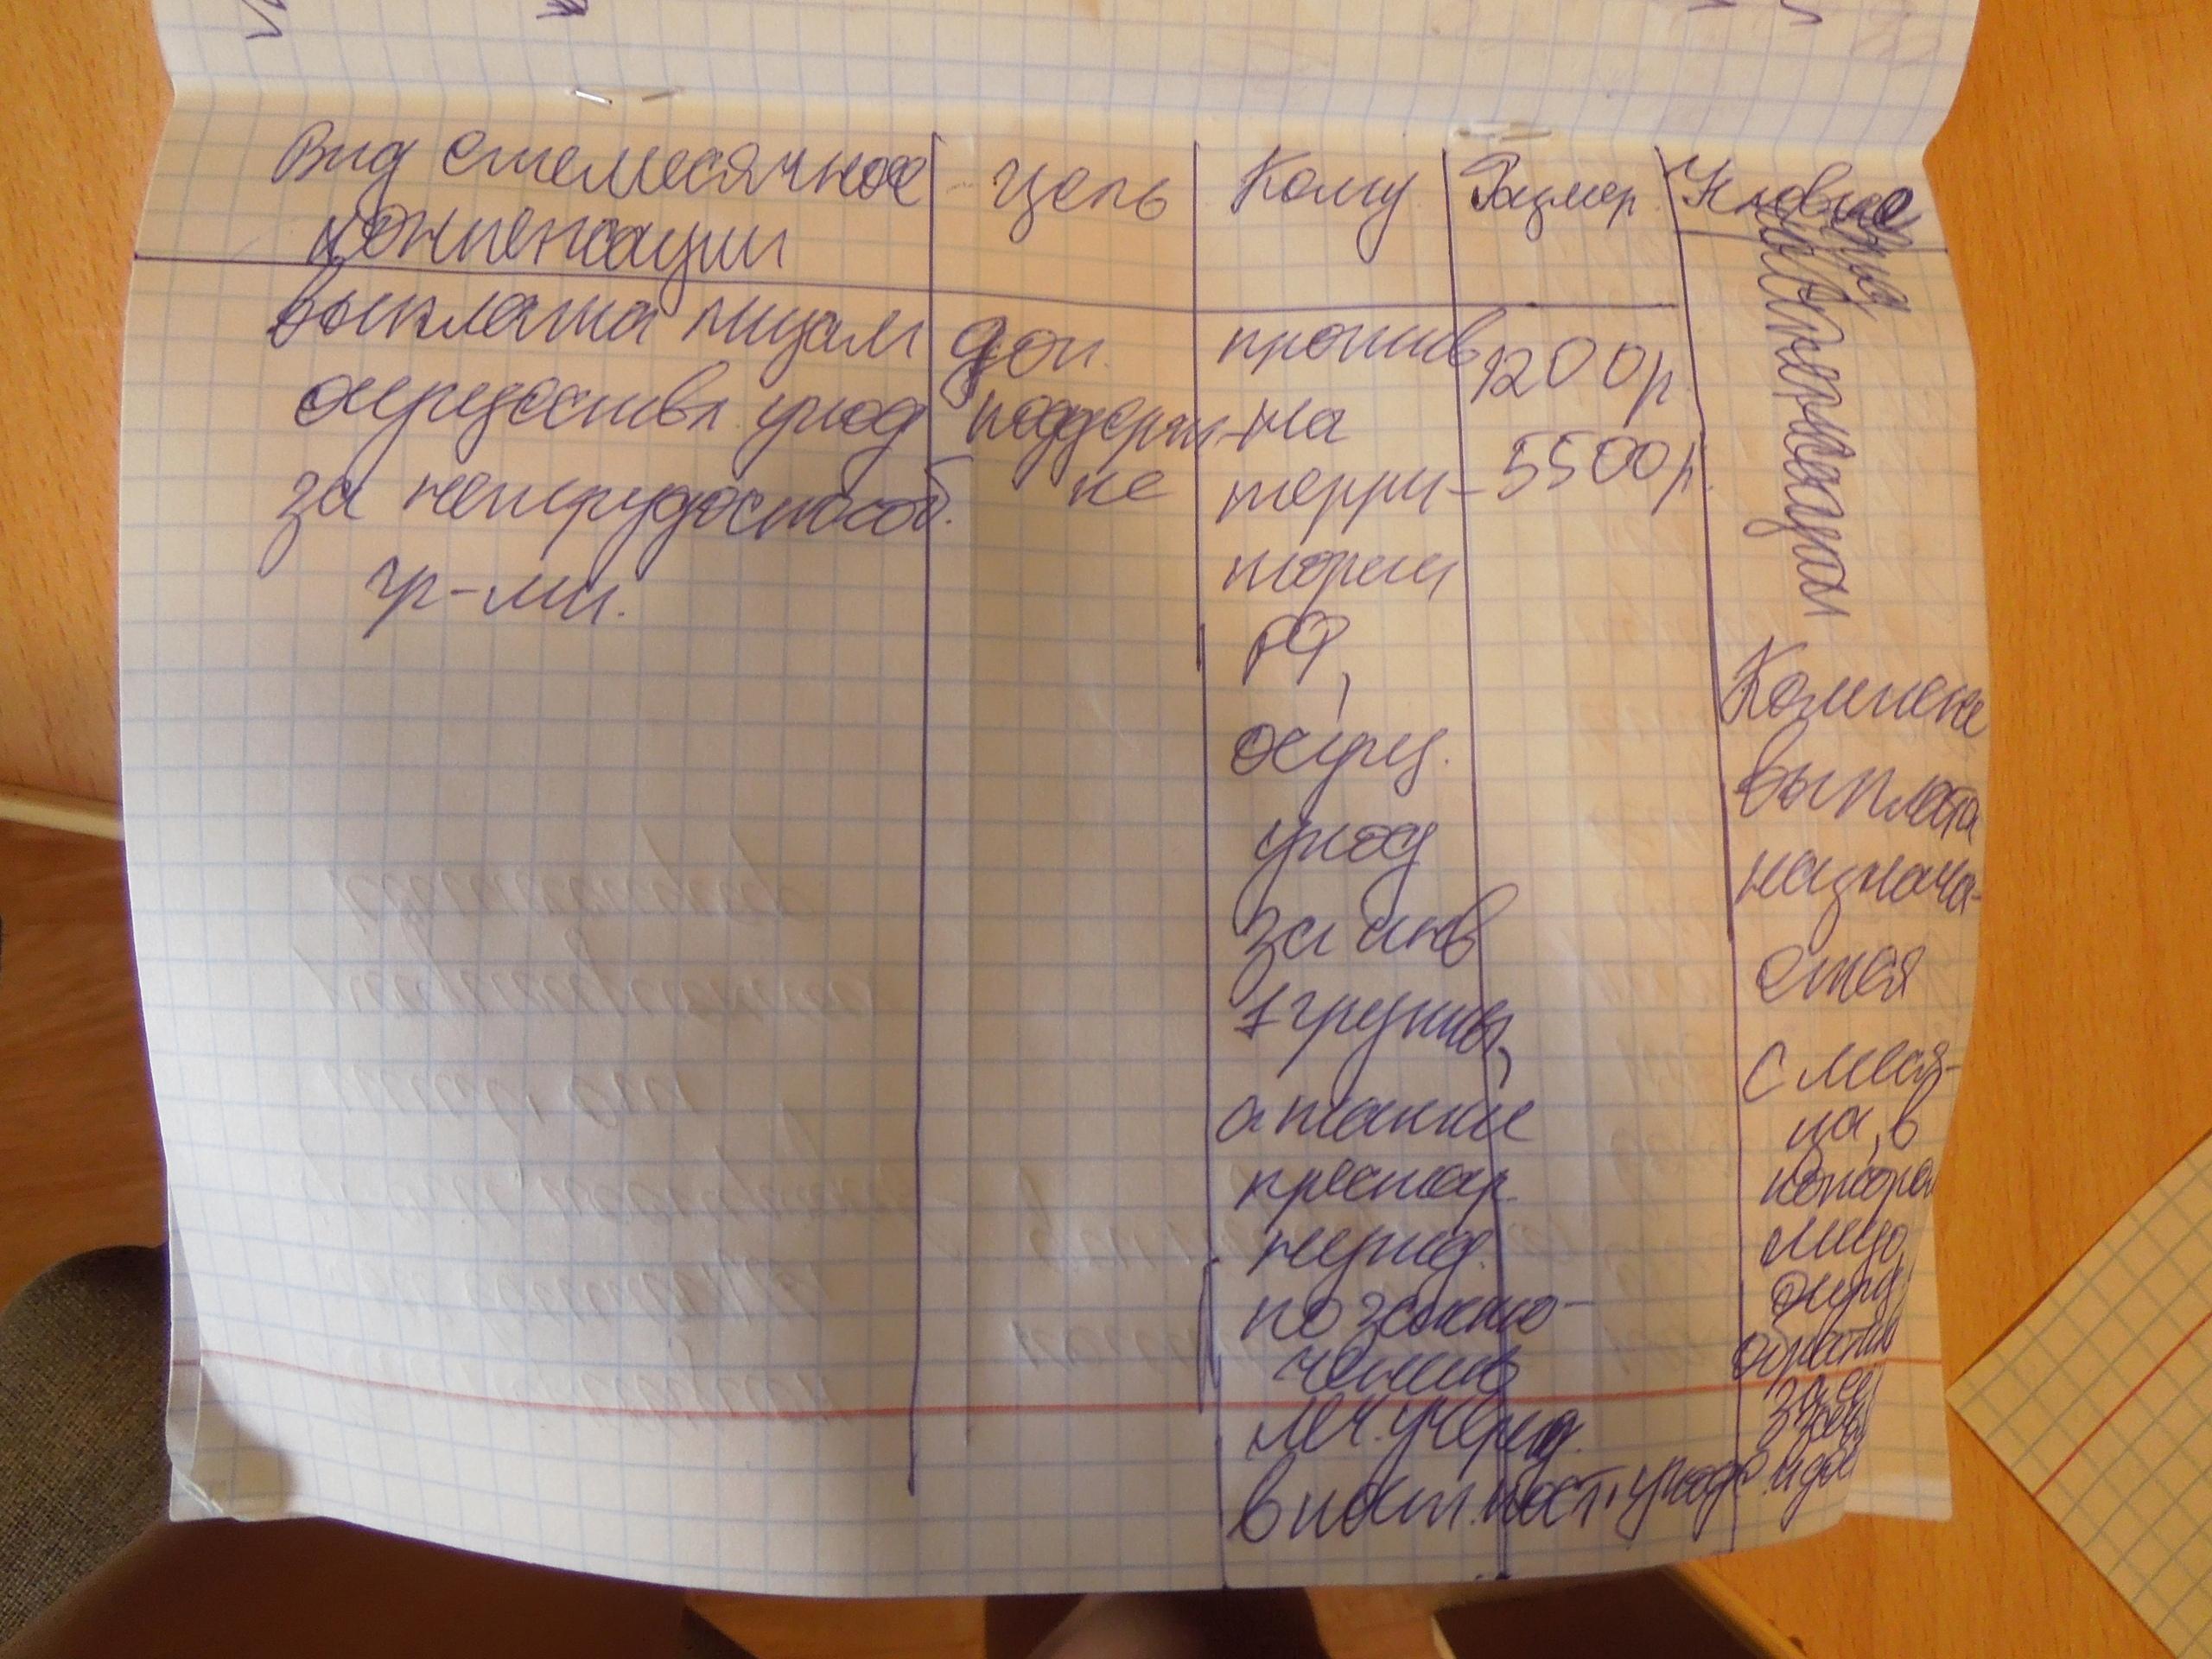 Вид ежемесячное
компенсации
Цель
Кому
Размер
Условие
выплата лицам
осуществл. уход
за нетрудоспособ.
гр-ми.
доп.
поддерж-
ке
прожив
на
терри-
тории
РФ,
осущ.
уход
за инв
1 группы,
а также
престар.
нужд.
по заклю-
чению
леч. учрежд.
в пост. уходе
1200р.
5500р.
Компенс
выплата
назнача-
ется
с меся-
ца, в
котором
лицо
обратил
за ней